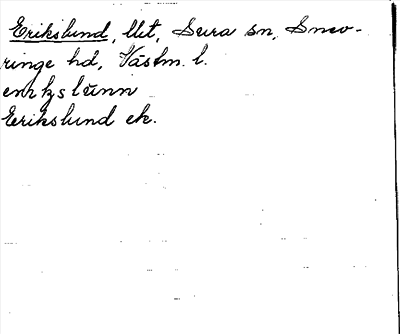 Erikslund, llit, Sura sn, Snev-
ringe hd, Västm. l.
Erikslund ek.